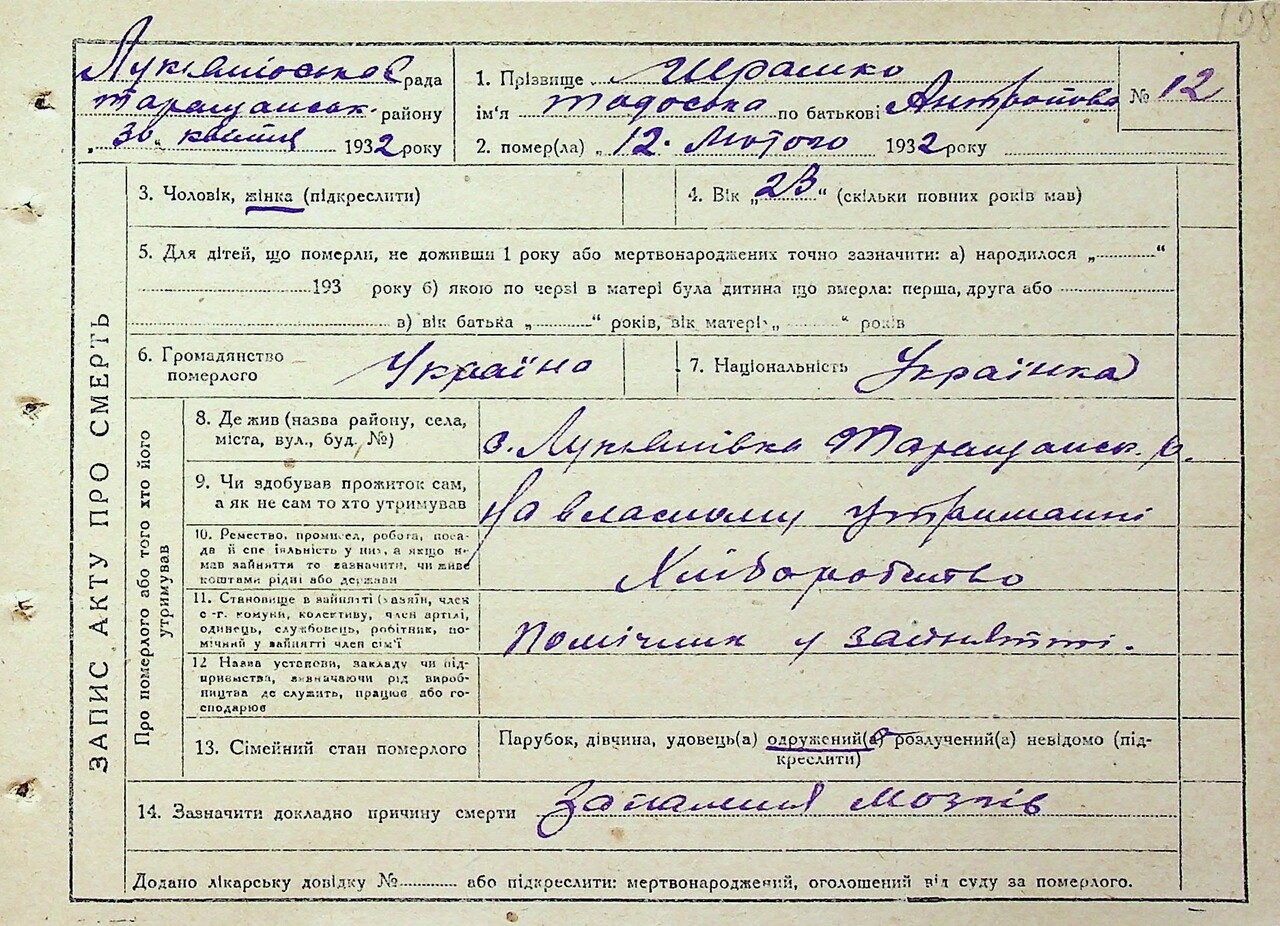 108
Лукянівська рада
Таращанськ. району
„30“ квітня 1932 року
1. Прізвище Шрамко
ім'я Тодоська по батькові Антропова
2. помер(ла) „12. Лютого 1932 року
№ 12
ЗАПИС АКТУ ПРО СМЕРТЬ
3. Чоловік, жінка (підкреслити)
4. Вік „23“ (скільки повних років мав)
5. Для дітей, що померли, не доживши 1 року або мертвонароджених точно зазначити: а) народилося „ “
193 року б) якою по черзі в матері була дитина що вмерла: перша, друга або
в) вік батька „ “ років, вік матері „ “ років
6. Громадянство
померлого
Україна
7. Національність Українка
Про померлого або того хто його
утримував
8. Де жив (назва району, села,
міста, вул., буд. №)
с. Лукянівка Таращанськ. р.
9. Чи здобував прожиток сам,
а як не сам то хто утримував
На власному утриманні
10. Ремество, промисел, робота, поса-
да й спе іяльність у них, а якщо н-
мав зайняття то зазначити, чи живе
коштами рідні або держави
Хліборобство
11. Становище в зайнятті (хазяїн, член
с-г. комуни, колективу, член артілі,
одинець, службовець, робітник, по-
мічний у зайнятті член сім'ї
помічник у зайнятті.
12 Назва установи, закладу чи під-
приємства, визначаючи рід вироб-
ництва де служить, працює або го-
сподарює
13. Сімейний стан померлого
Парубок, дівчина, удовець(а) одружений(а) розлучений(а) невідомо (під-
креслити)
14. Зазначити докладно причину смерти Запалення мозгів
Додано лікарську довідку № або підкреслити: мертвонароджений, оголошений від суду за померлого.